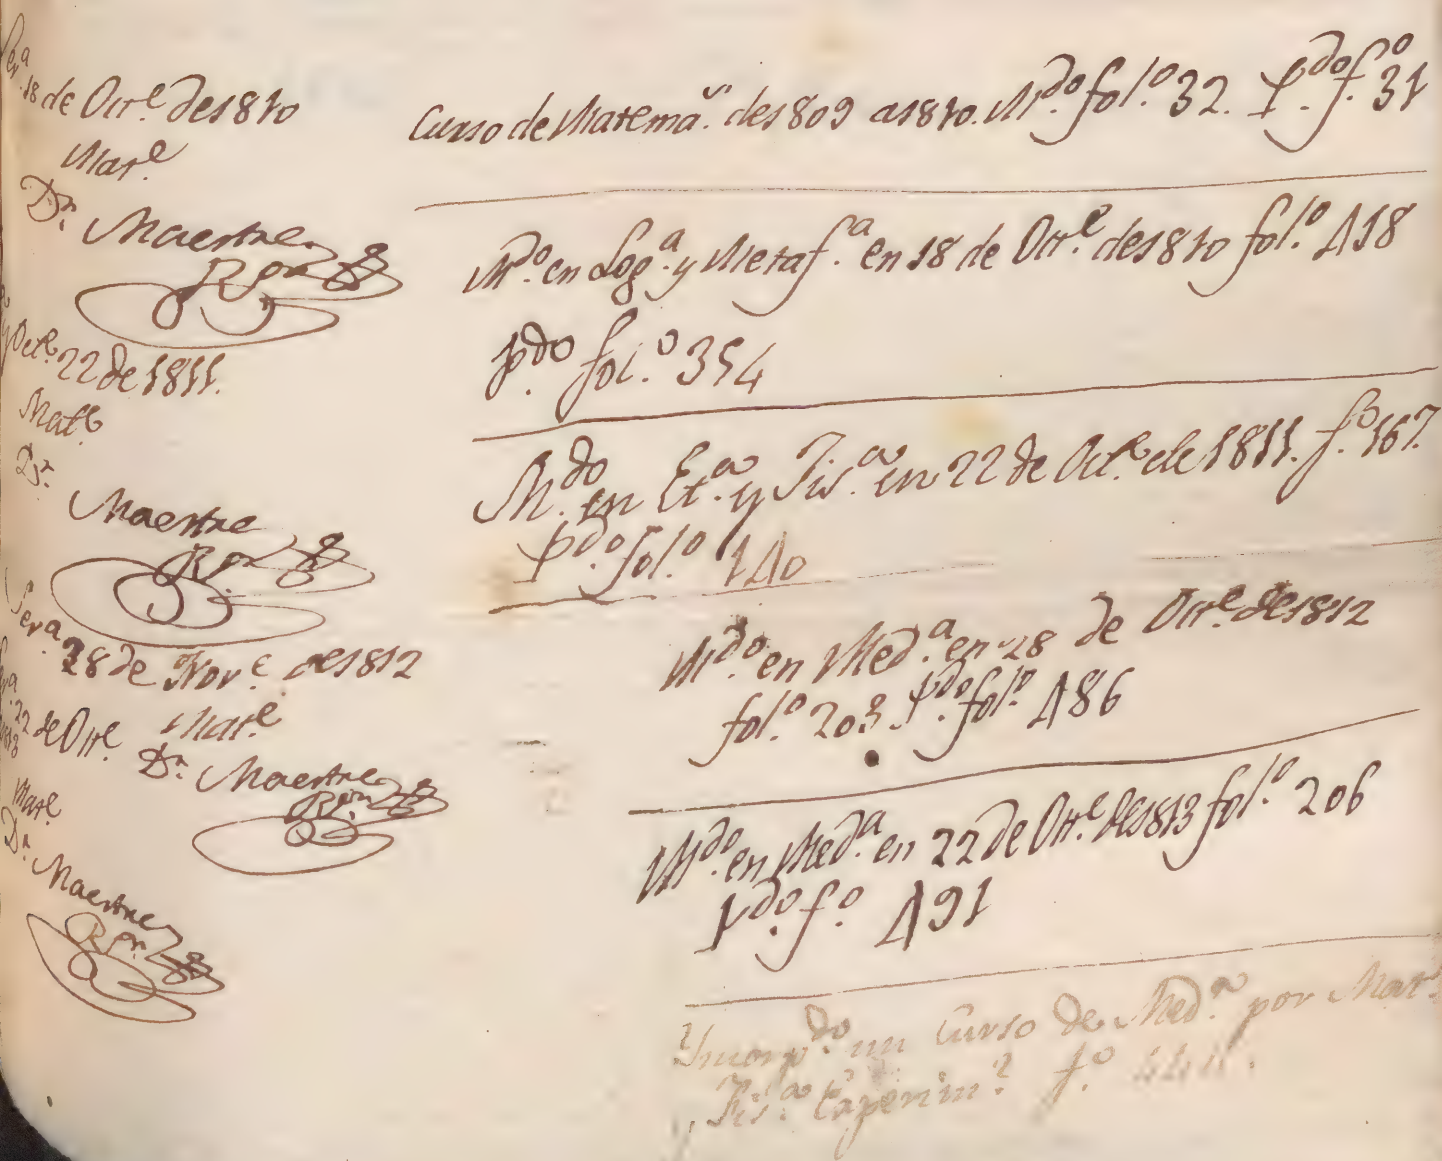 Sev.ª
18 de Oct.e de 1810
Mat.e
D.r Maestre
R.or
Oct.e 22 de 1811.
Mat.e
D.r
Maestre
R.or
Sev.ª
28 de Nov.e de 1812
Mat.e
D.r Maestre
R.or
22 de Oct.e
Mat.e
D.r Maestre
R.or
Curso de Matemá.s de 1809 a 1810. M.do fol.o 32. P.do f.o 31
M.do en Log.a y Metaf.a en 18 de Oct.e de 1810 fol.o 418
p.do fol.o 354
M.do en Et.a y Fis.a en 22 de Oct.e de 1811. f.o 167.
p.do fol.o 140
M.do en Med.a en 28 de Oct.e de 1812
fol.o 203 P.do fol.o 186
M.do en Med.a en 22 de Oct.e de 1813 fol.o 206
P.do f.o 191
Yncorp.do un Curso de Med.a por Mat.
Fis.a Experim.l f.o